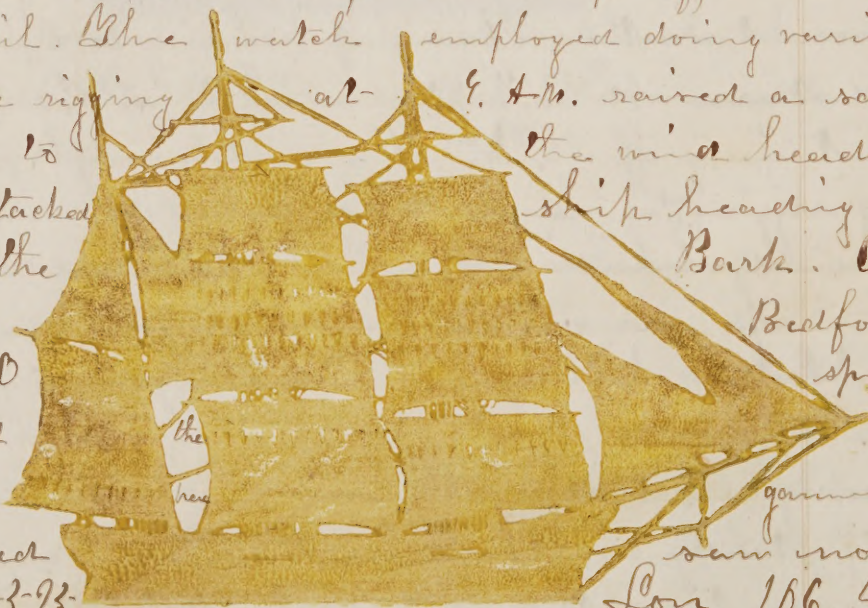 The watch employed doing
rigging at 9. A.M. raised a
to the wind head
tacked ship heading
the Bark.
Bedfo
sp
the
here
gam
saw no
Lon 166